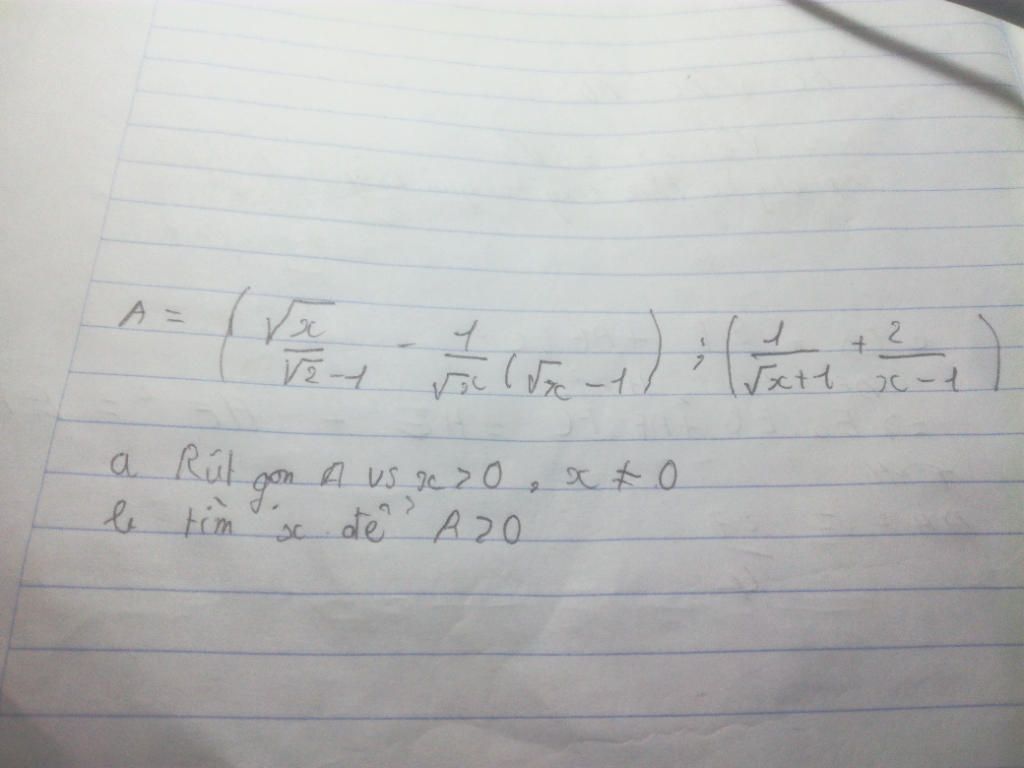 A = ( √x / (√2 - 1) - 1 / (√x (√x - 1) ) ; ( 1 / (√x+1) + 2 / (x - 1) )
a Rút gọn A vs x > 0 , x ≠ 0
b tìm x để A > 0